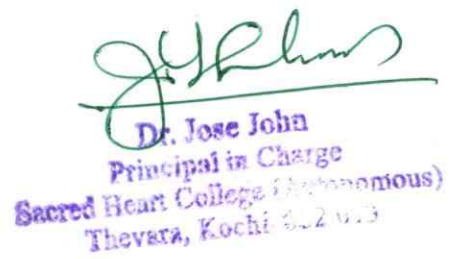 Dr. Jose John
Principal in Charge
Sacred Heart College (Autonomous)
Thevara, Kochi